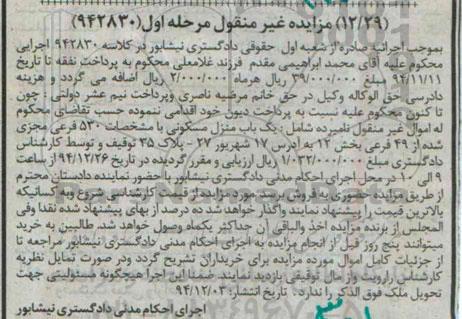 (۱۲/۲۹) مزایده غیر منقول مرحله اول (۹۴۲۸۳۰)
بموجب اجرائیه صادره از شعبه اول حقوقی دادگستری نیشابور در کلاسه ۹۴۲۸۳۰ اجرایی
محکوم علیه آقای محمد ابراهیمی مقدم فرزند غلامعلی محکوم به پرداخت نفقه تا تاریخ
۹۴/۱۱/۱۱ مبلغ ۳۹/۰۰۰/۰۰۰ ریال هرماه ۲/۰۰۰/۰۰۰ ریال اضافه می گردد و هزینه
دادرسی حق الوکاله وکیل در حق خانم مرضیه ناصری وپرداخت نیم عشر دولتی چون
تا کنون محکوم علیه نسبت به پرداخت دیون خود اقدامی ننموده حسب تقاضای محکوم
له اموال غیر منقول نامبرده شامل : یک باب منزل مسکونی با مشخصات ۵۳۰ فرعی مجزی
شده از ۴۹ فرعی بخش ۱۲ به آدرس ۱۷ شهریور ۲۷ - پلاک ۳۵ توقیف و توسط کارشناس
دادگستری مبلغ ۱/۰۳۲/۰۰۰/۰۰۰ ریال ارزیابی و مقرر گردیده در تاریخ ۹۴/۱۲/۲۶ از ساعت
۹ الی ۱۰ در محل اجرای احکام مدنی دادگستری نیشابور با حضور نماینده دادستان محترم
از طریق مزایده حضوری به فروش برسد مورد مزایده از قیمت کارشناسی شروع وبه کسانیکه
بالاترین قیمت را پیشنهاد نمایند واگذار خواهد شد ده درصد از بهای پیشنهاد شده نقدا وفی
المجلس از برنده مزایده اخذ والباقی آن حداکثر یکماه وصول خواهد شد. طالبین به خرید
میتوانند پنج روز قبل از انجام مزایده به اجرای احکام مدنی دادگستری نیشابور مراجعه تا
از جزئیات کامل اموال مورده مزایده برای خریداران تشریح گردد ودر صورت تمایل نظریه
کارشناس را رویت واز مال توقیفی بازدید نمایند. ضمنا این اجرا هیچگونه مسئولیتی جهت
تحویل ملک فوق الذکر را ندارد. تاریخ انتشار: ۹۴/۱۲/۰۳
اجرای احکام مدنی دادگستری نیشابور